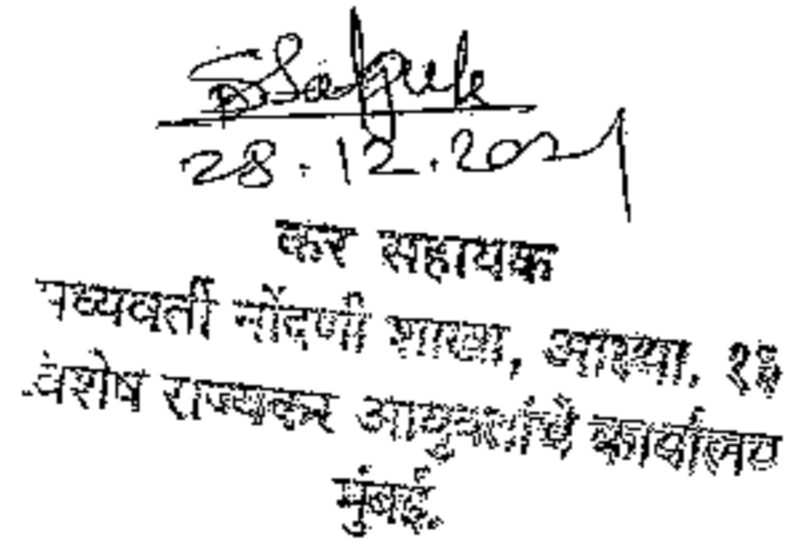 28.12.2021
कर सहायक
मध्यवर्ती नोंदणी शाखा, आस्था. १३
विशेष राज्यकर आयुक्तांचे कार्यालय
मुंबई.